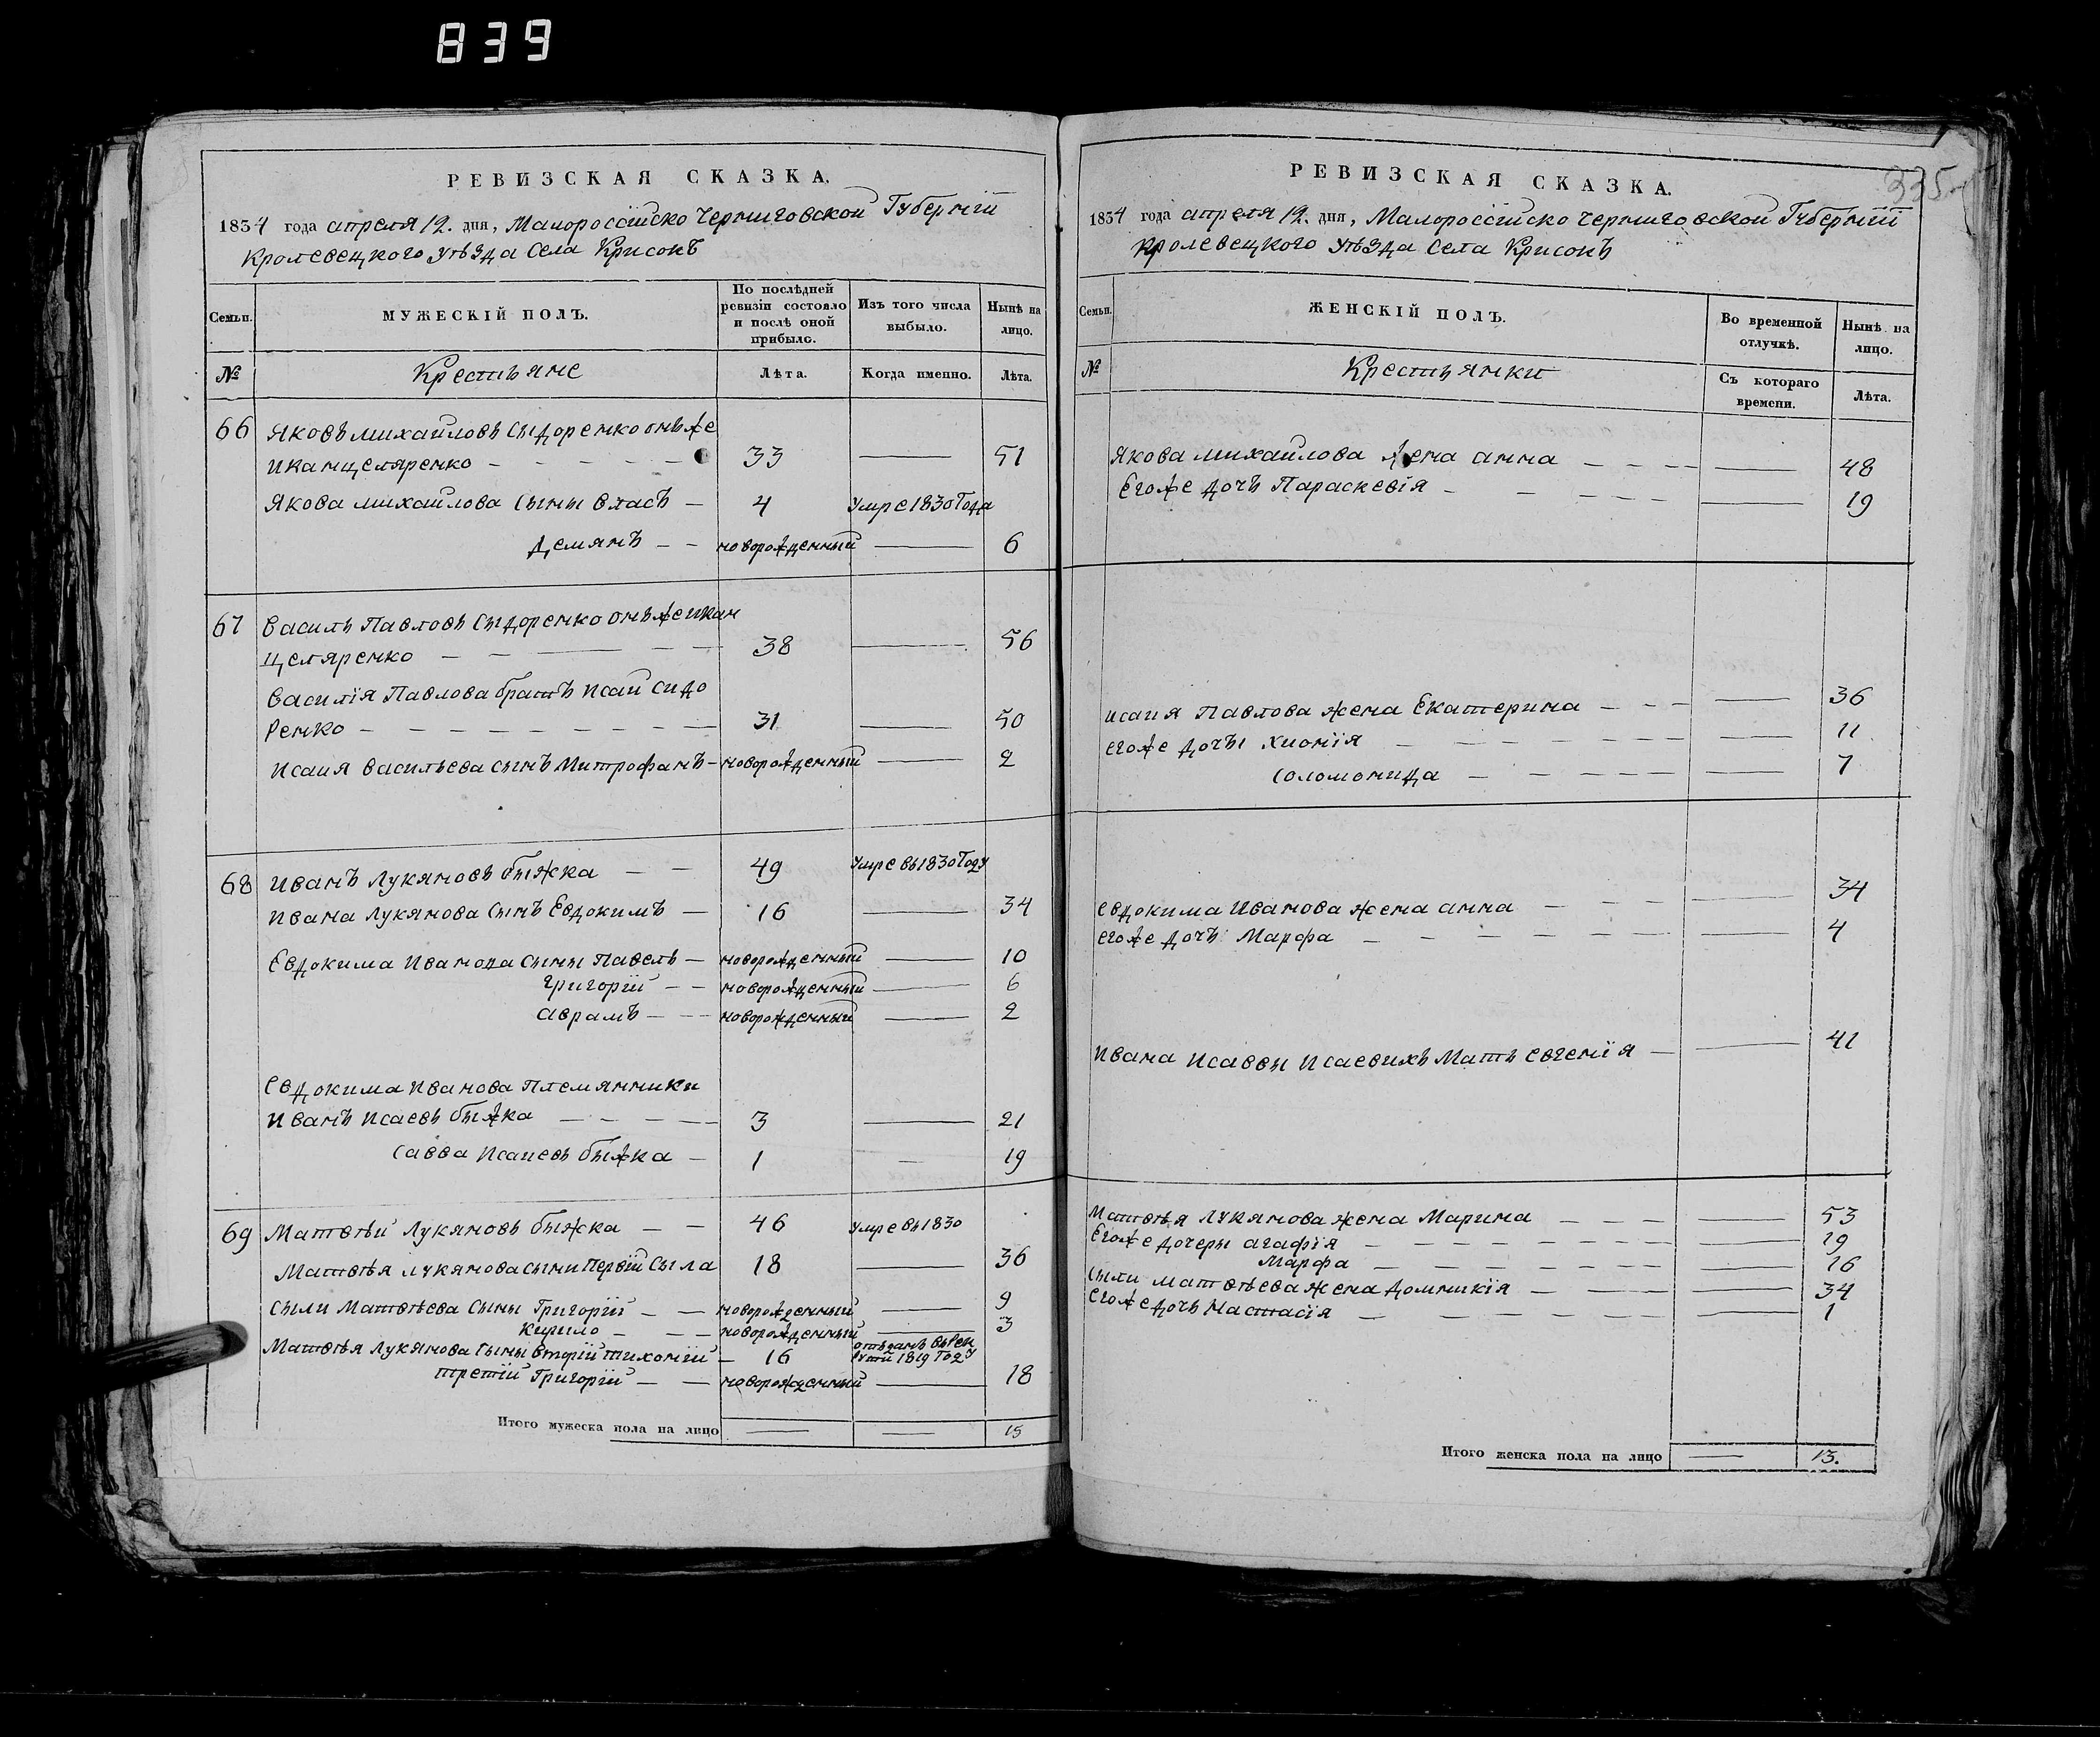 839
РЕВИЗСКАЯ СКАЗКА.
1834 года апреля 12. дня, Малороссійско Черниговской Губерніи
Кролевецкого уѣзда Села Крисокъ
Семьи.
МУЖЕСКІЙ ПОЛЪ.
По послѣдней ревизіи состояло и послѣ оной прибыло.
Изъ того числа выбыло.
Нынѣ на лицо.
№
Крестьяне
Лѣта.
Когда именно.
Лѣта.
66 Яковъ михайловъ Сыдоренко онъже
иканцеляренко 33 51
Якова михайлова Сыны власъ 4 умре 1830 Года
Демянъ новорожденный 6
67 Василь Павловъ Сыдоренко онъже икан
целяренко 38 56
Василія Павлова братъ исай сидо
Ренко 31 50
Исаия васильева сынъ Митрофанъ новорожденный 2
68 Иванъ Лукяновъ быжка 49 умре въ 1830 Году
Ивана Лукянова Сынъ Евдокимъ 16 34
Евдокима Иванова сыны Павелъ новорожденный 10
Григорій новорожденный 6
аврамъ новорожденный 2
Евдокима Иванова племянники
Иванъ исаевъ быжка 3 21
Савва исаиевъ быжка 1 19
69 Матвѣй Лукяновъ быжка 46 умре въ 1830
Матвѣя лукянова сыни Первій Сыла 18 36
Сыли Матвѣева Сыны Григорій новорожденный 9
Кирило новорожденный 3
Матвѣя Лукянова Сыны вторій тихоній 16 отъданъ въ рек
руты 1819 Году
третій Григорій новорожденный 18
Итого мужеска пола на лицо 15
335
РЕВИЗСКАЯ СКАЗКА.
1834 года апреля 12. дня, Малороссійско Черниговской Губерніи
кролевецкого уѣзда Села Крисокъ
Семьи.
ЖЕНСКІЙ ПОЛЪ.
Во временной отлучкѣ.
Нынѣ на лицо.
№
Крестьянки
Съ котораго времени.
Лѣта.
Якова михайлова жена анна 48
Егоже дочъ Параскевія 19
исаия Павлова жена Екатерина 36
егоже дочъи хионія 11
Соломонида 7
евдокима Иванова жена анна 34
егоже дочъ Марфа 4
ивана исаввы исаевихъ Мать евгенія 41
Матвѣя Лукянова жена Марина 53
Егоже дочеры агафія 19
Марфа 16
Сыли матвѣева жена домникія 34
егоже дочъ Настасія 1
Итого женска пола на лицо 13.